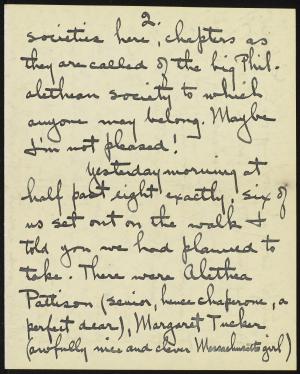 2.
societies here, chapters as
they are called of the big Phil-
alethean society to which
anyone may belong. Maybe
I'm not pleased!
Yesterday morning at
half past eight exactly, six of
us set out on the walk I
told you we had planned to
take. There were Alethea
Pattison (senior, hence chaperone, a
perfect dear), Margaret Tucker
(awfully nice and clever Massachusetts girl)